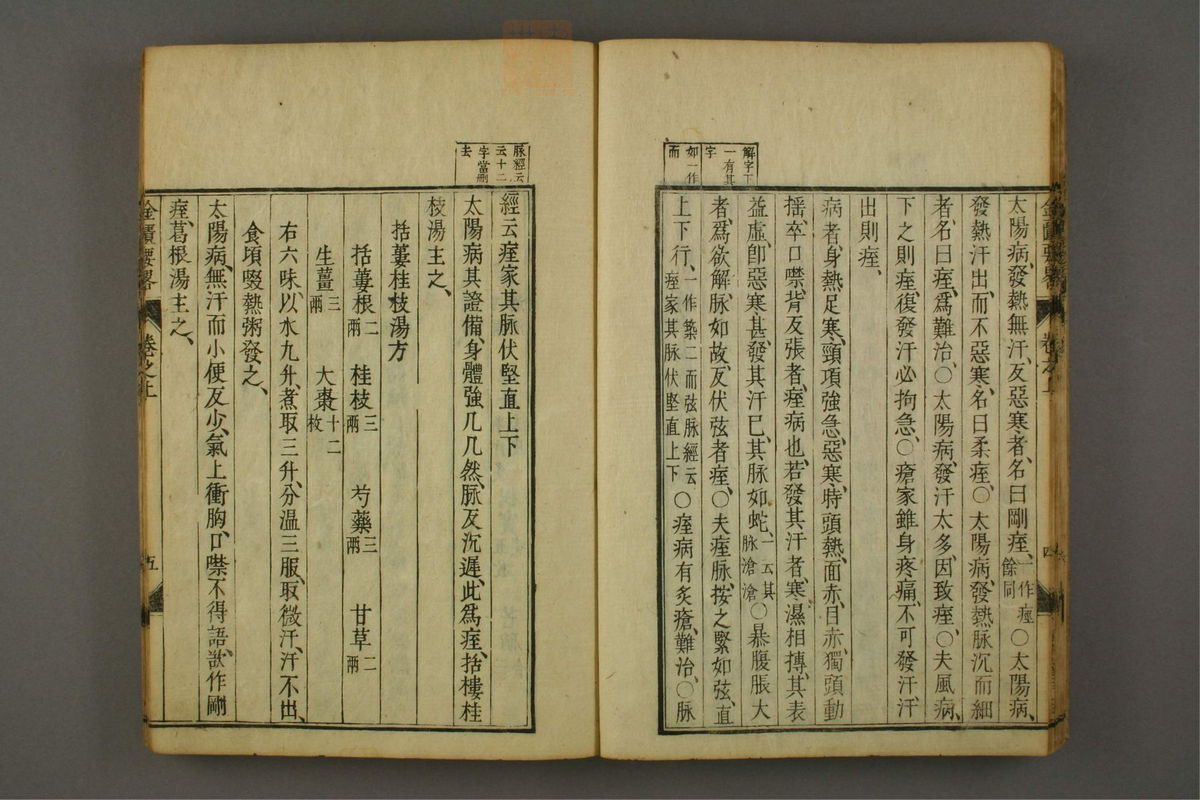 解字下
一有其
字
如一作
而
太陽病、發熱無汗、反惡寒者、名曰剛痓、一作痙餘同○太陽病、
發熱汗出、而不惡寒、名曰柔痓、○太陽病、發熱脉沉而細
者、名曰痓、爲難治、○太陽病、發汗太多、因致痓、○夫風病、
下之則痓、復發汗必拘急、○瘡家雖身疼痛、不可發汗、汗
出則痓、
病者、身熱足寒、頸項強急、惡寒、時頭熱、面赤、目赤、獨頭動
揺、卒口噤、背反張者、痓病也、若發其汗者、寒濕相搏、其表
益虛、卽惡寒甚、發其汗已、其脉如蛇、一云其脉滄滄○暴腹脹大
者、爲欲解、脉如故、反伏弦者痓、○夫痓脉、按之緊如弦、直
上下行、一作築二而弦脉經云痓家其脉伏堅直上下○痓病有灸瘡、難治、○脉
金匱要畧
卷之上
四
脉經云
云十二
字當刪
去
經云痓家其脉伏堅直上下
太陽病、其證備、身體強几几然、脉反沉遲、此爲痓、括樓桂
枝湯主之、
括蔞桂枝湯方
括蔞根二兩 桂枝三兩 芍藥三兩 甘草二兩
生薑三兩 大棗十二枚
右六味、以水九升、煮取三升、分温三服、取微汗、汗不出、
食頃啜熱粥發之、
太陽病、無汗而小便反少、氣上衝胸、口噤不得語、欲作剛
痓、葛根湯主之、
金匱要畧
卷之上
五